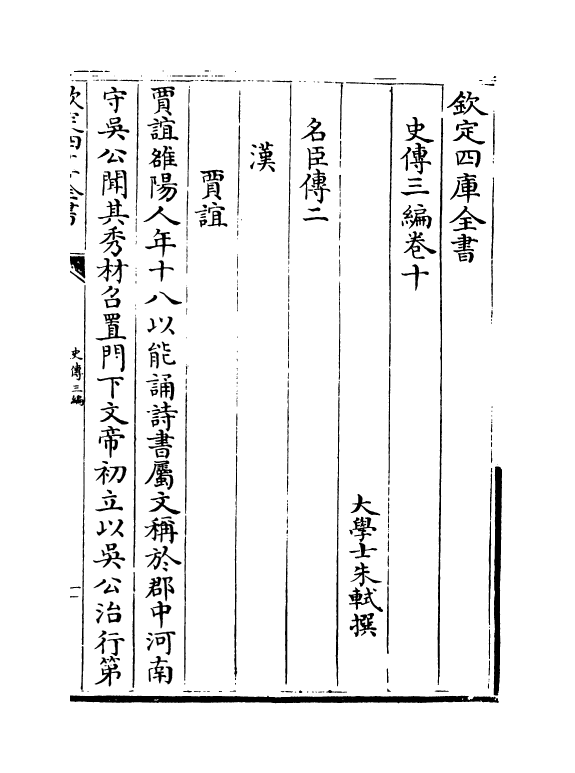 欽定四庫全書
史傳三編卷十
大學士朱軾撰
名臣傳二
漢
賈誼
賈誼雒陽人年十八以能誦詩書屬文稱於郡中河南
守吳公聞其秀材召置門下文帝初立以吳公治行第
欽定四庫全書
史傳三編
一